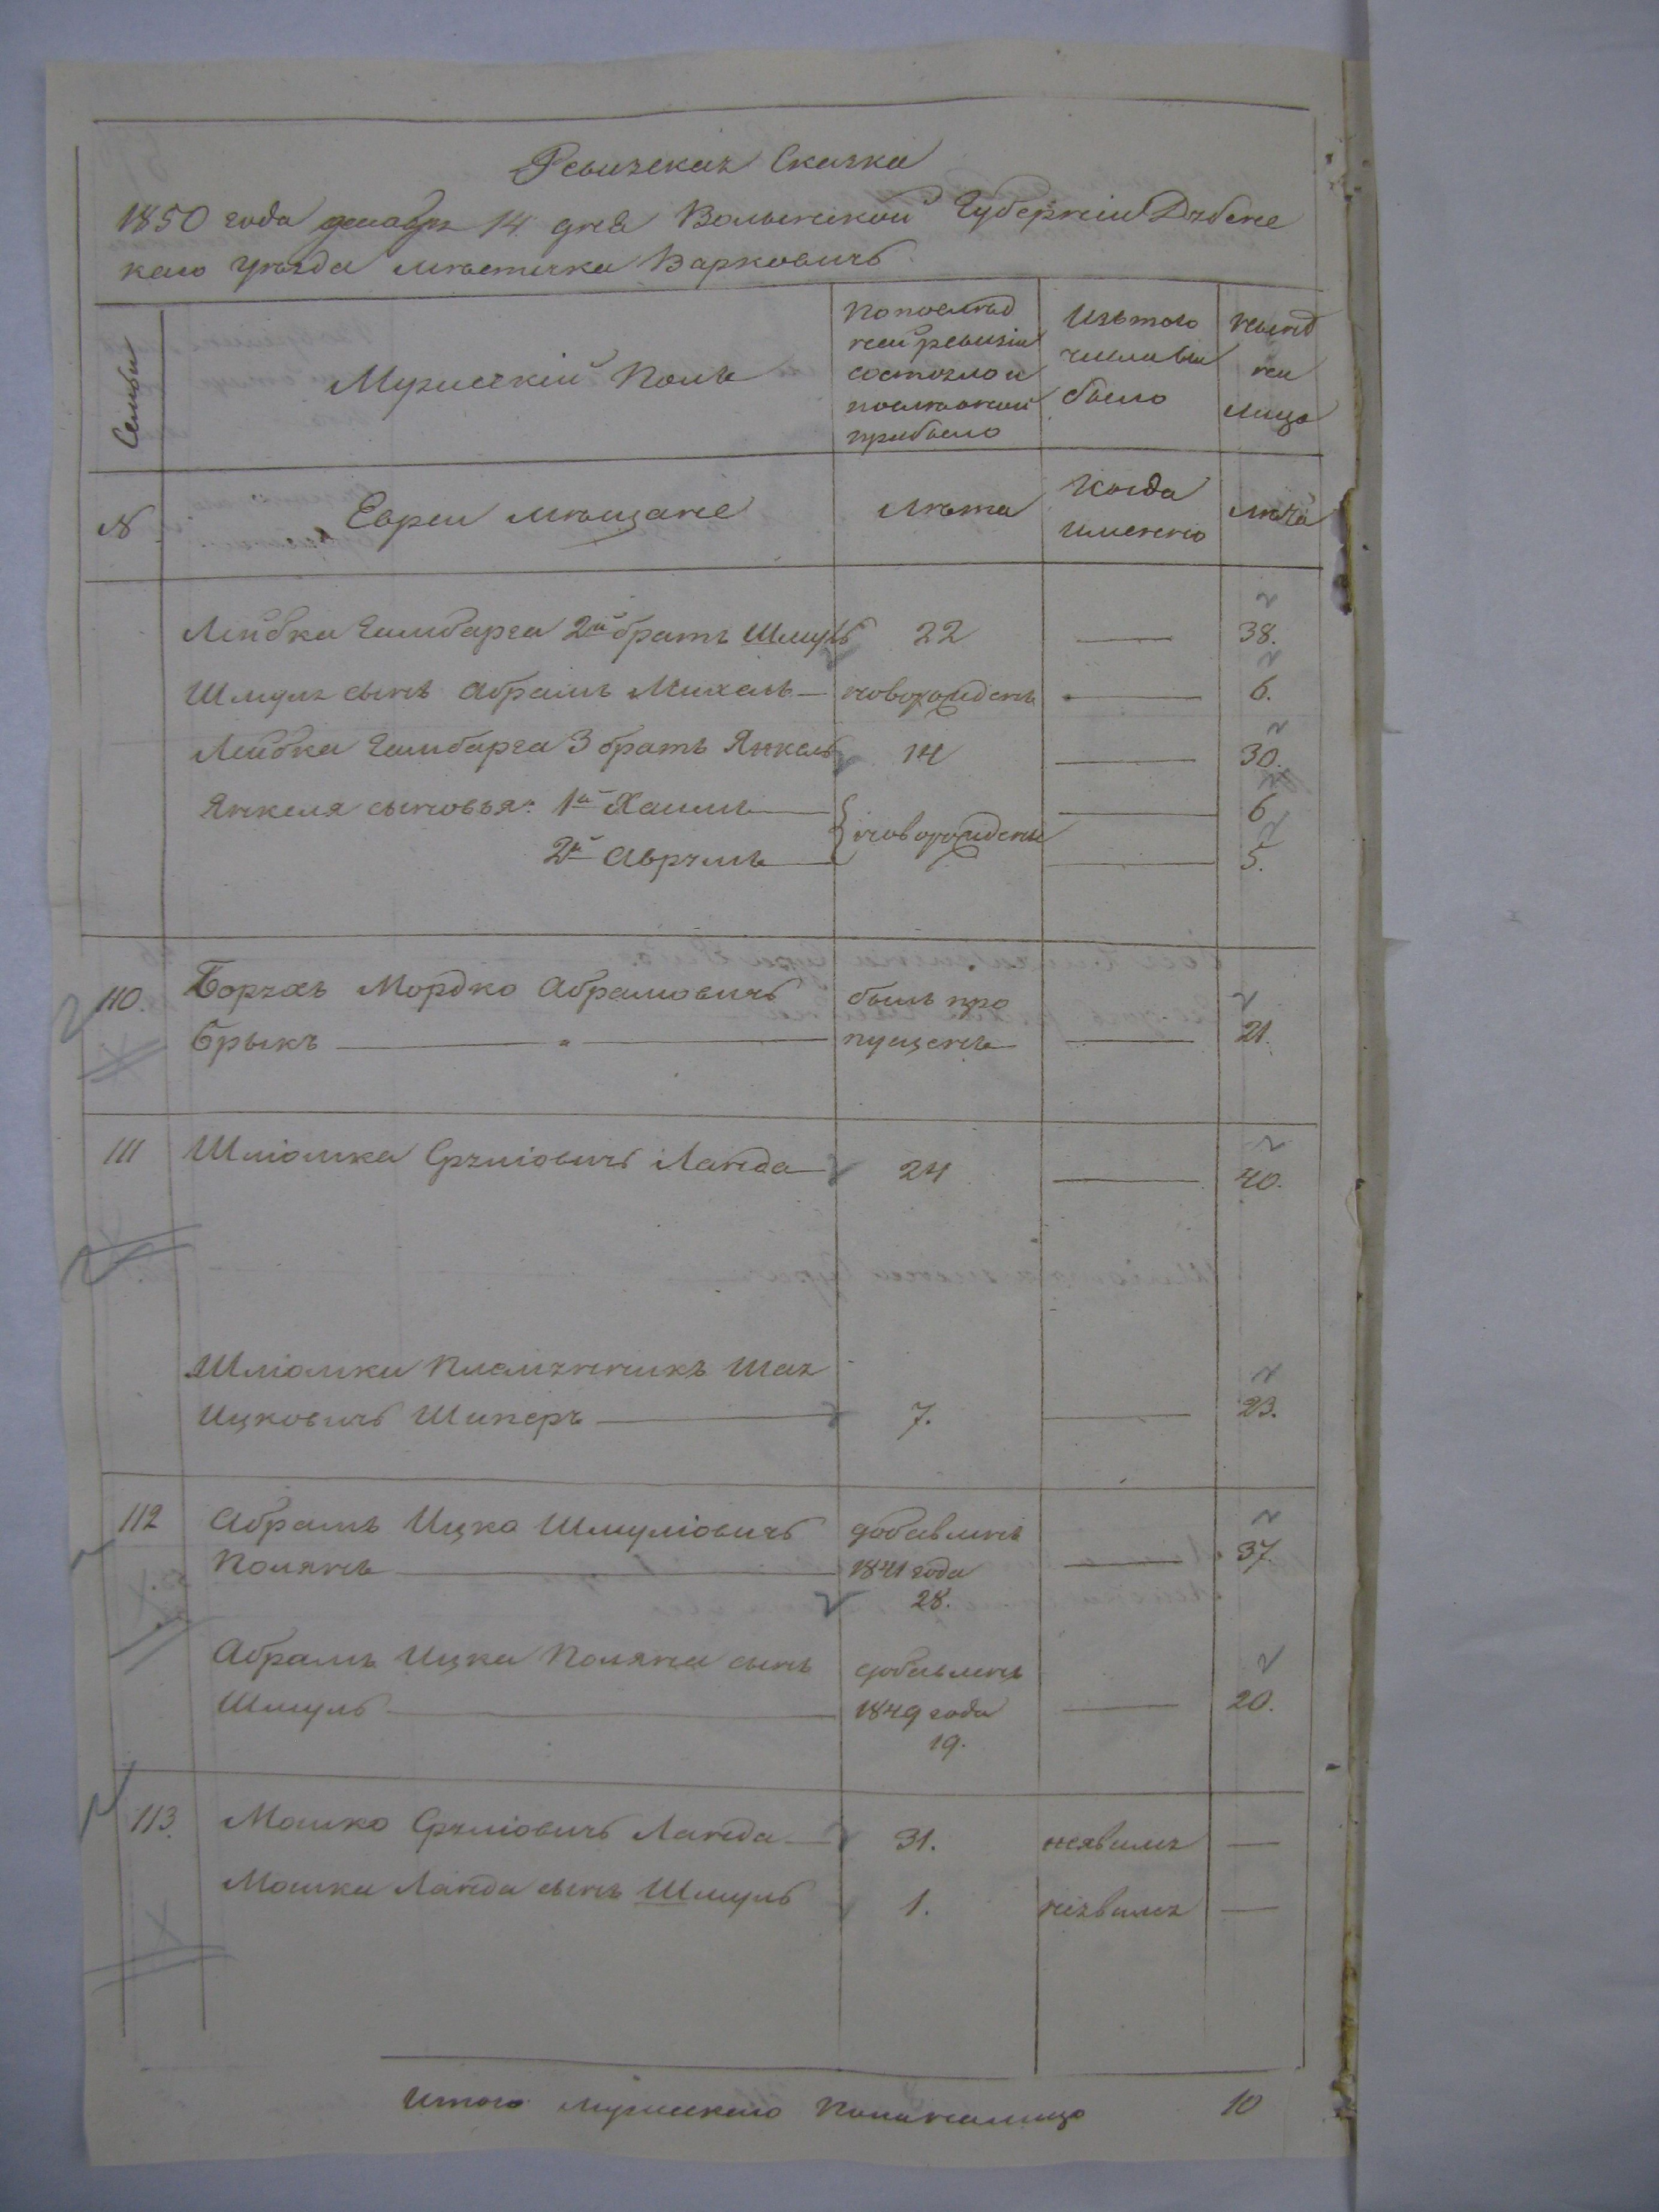 Ревизская Сказка
1850 года декабря 14 дня Волынской Губерніи Дубенс
каго уѣзда мѣстечка Варковичь
Семьи
Мужескій Полъ
По послѣд
ней ревизіи
состояло и
послѣ оной
прибыло
Изъ того
числа вы
было
нынѣ
на
лицо
№
Евреи мѣщане
Лѣта
Когда
именно
Лѣта
Лейбка Гамбарга 2й братъ Шмуль 22 — 38.
Шмуля сынъ Абрамъ Михель — новорожденъ — 6.
Лейбка Гамбарга 3 братъ Янкель 14 — 30.
Янкеля сыновья: 1й Хаимъ — новорождены — 6
2й Аврумъ — — 5.
110. Борухъ Мордко Абрамовичь былъ про
Брыкъ — " — пущенъ — 21.
111 Шліомка Сруліовичь Ланда 24 — 40.
Шліомки племянникъ Шая
Ицковичь Шперъ — 7. — 23.
112 Абрамъ Ицко Шмуліовичь добавленъ
Полякъ — 1841 года — 37.
28.
Абрамъ Ицка Поляка сынъ добавленъ
Шмуль — 1849 года — 20.
19.
113. Мошко Сруліовичь Ланда — 31. неявился —
Мошка Ланда сынъ Шмуль 1. неявился —
Итого мужеского пола налицо 10